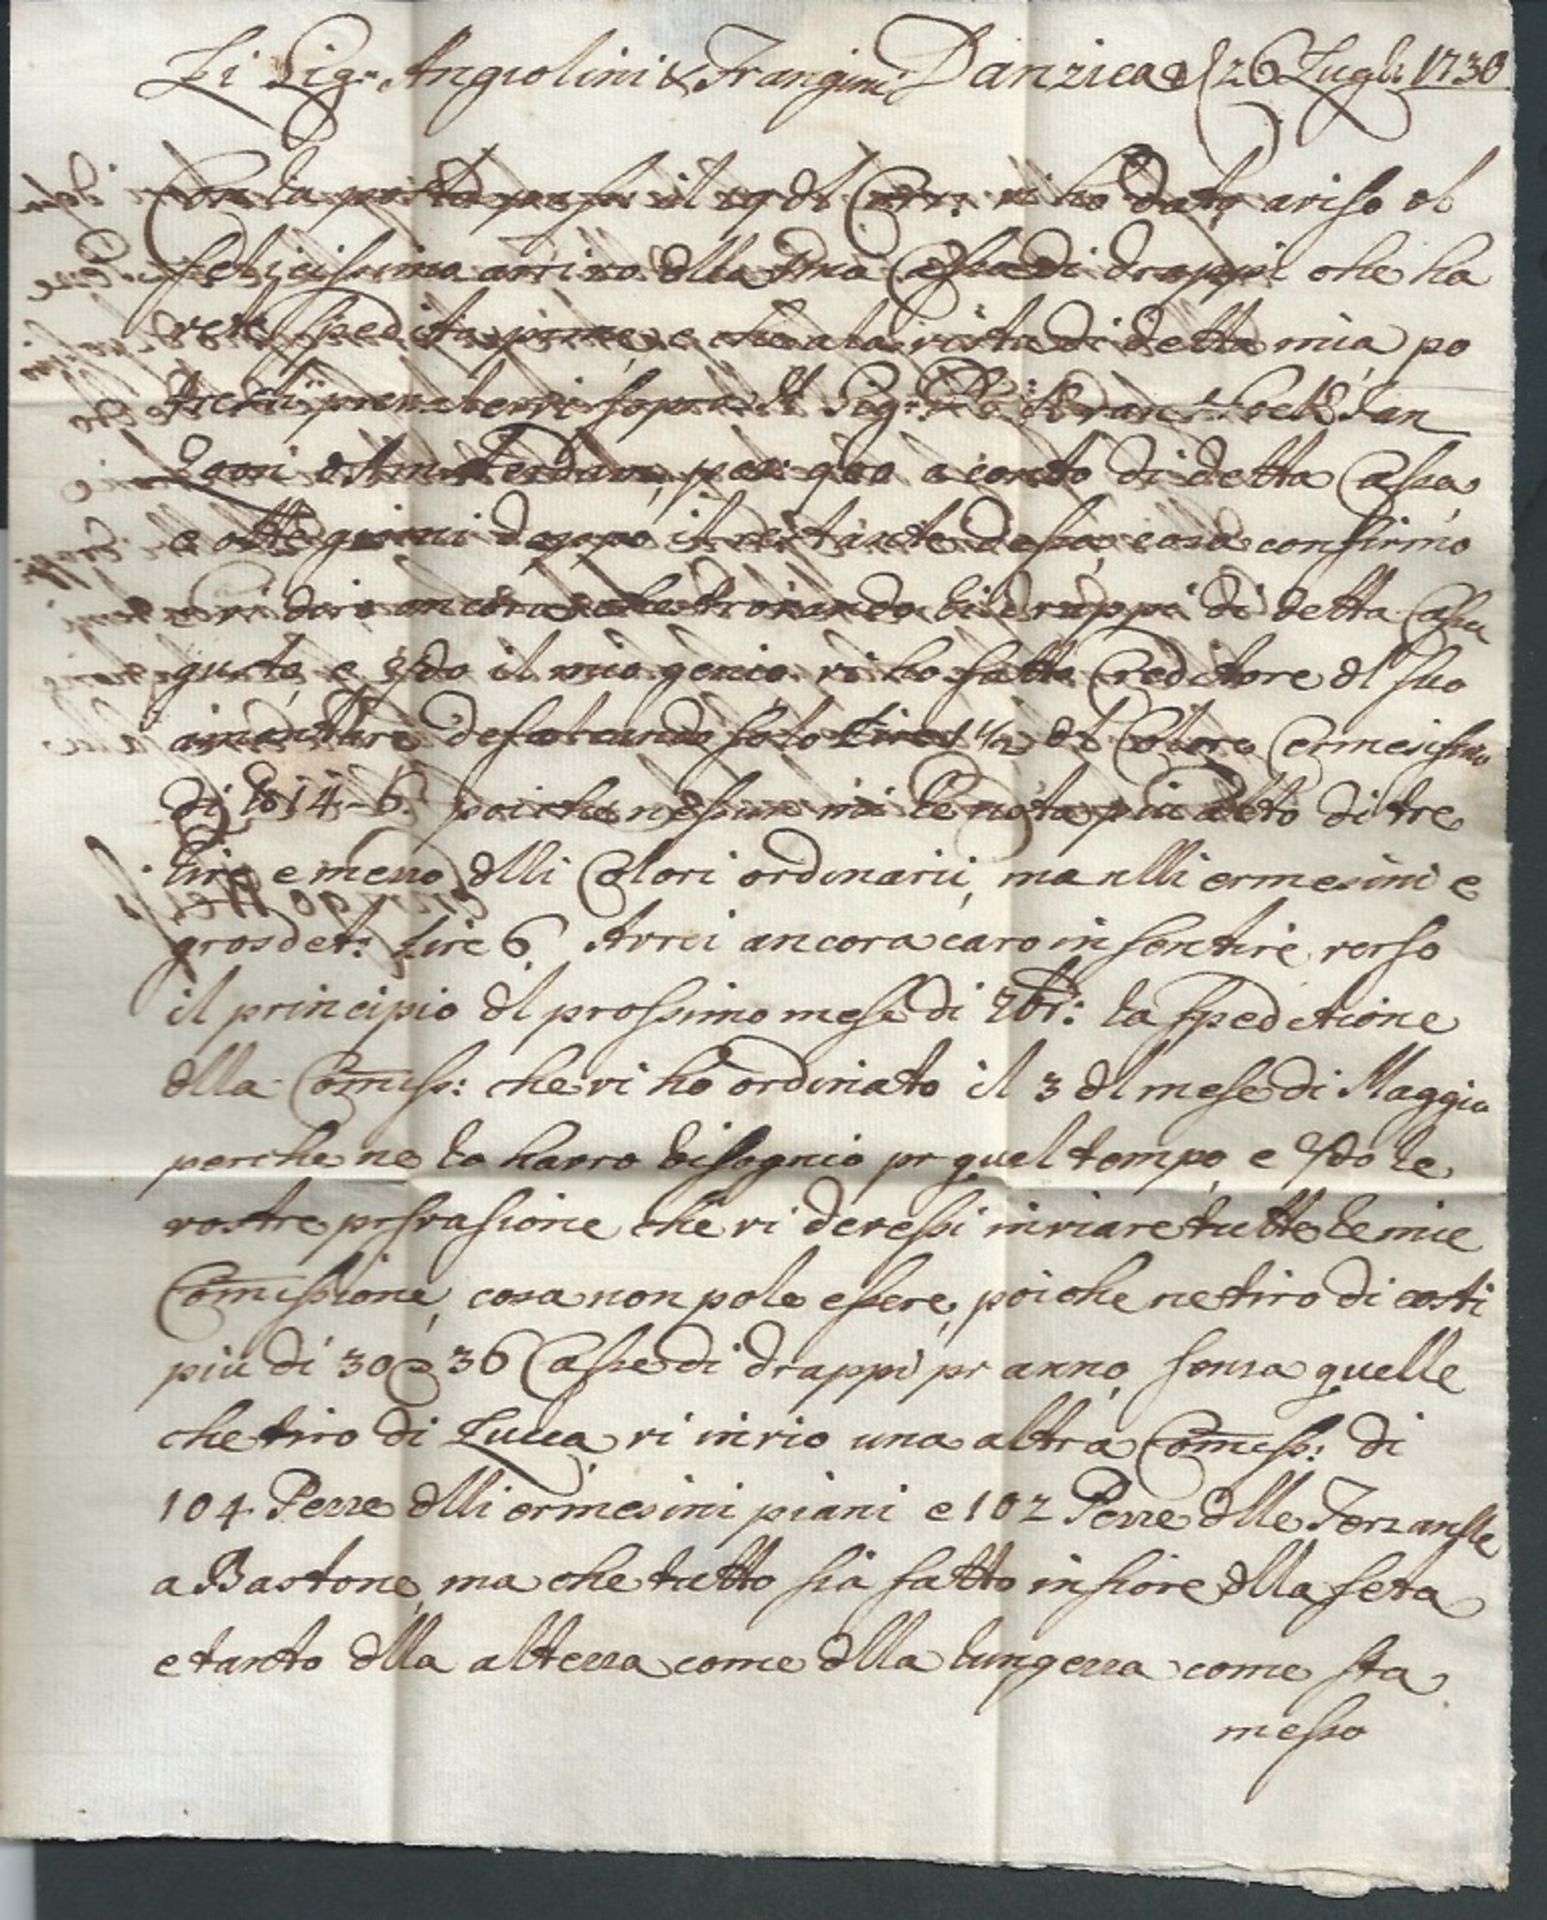 Li Sig.ri Angiolini & Frangini Danzica d 26 Lugli 1730
Con la posta persa il 19 dl Corr: vi ho dato aviso dl
felicissimo arrivo dlla Cassa di drappi che ha
vete spedita e che a la vista di detta mia po
prendervi sopra il Sig:
d'Amsterdam, pez: 900 a conto di detta Cassa,
e otto giorni dopo il restante dessa, cosa confirmo
e vi dirò ancora che trovando li drappi di detta Cassa
gusto, e il mio genio, vi ho fatto Creditore dl suo
amontare defalcando solo Lire 1 1/2 dl Colore Cermesissimo
di lb 14-6. poiche nessun mi le nota più alto di tre
lire e meno dlli Colori ordinarii, ma nlli ermesini e
grosdet: Lire 6. Avrei ancora caro in sentire verso
il principio dl prossimo mese di la speditione
dlla Comiss: che vi ho ordinato il 3 dl mese di Maggio
perche ne lo havro bisognio pr quel tempo, e le
vostre che vi devessi inviare tutte le mie
Comissione, cosa non pole essere, poiche ne tiro di costi
più di 30 a 36 Casse di drappi pr anno, senza quelle
che tiro di Lucca, vi invio una altra Comiss: di
104 Pezze dlli ermesini piani e 102 Pezze dlle Terzanelle
a Bastone, ma che tutto sia fatto in fiore dlla seta
e tanto dlla altezza come dlla lungezza come sta
messo